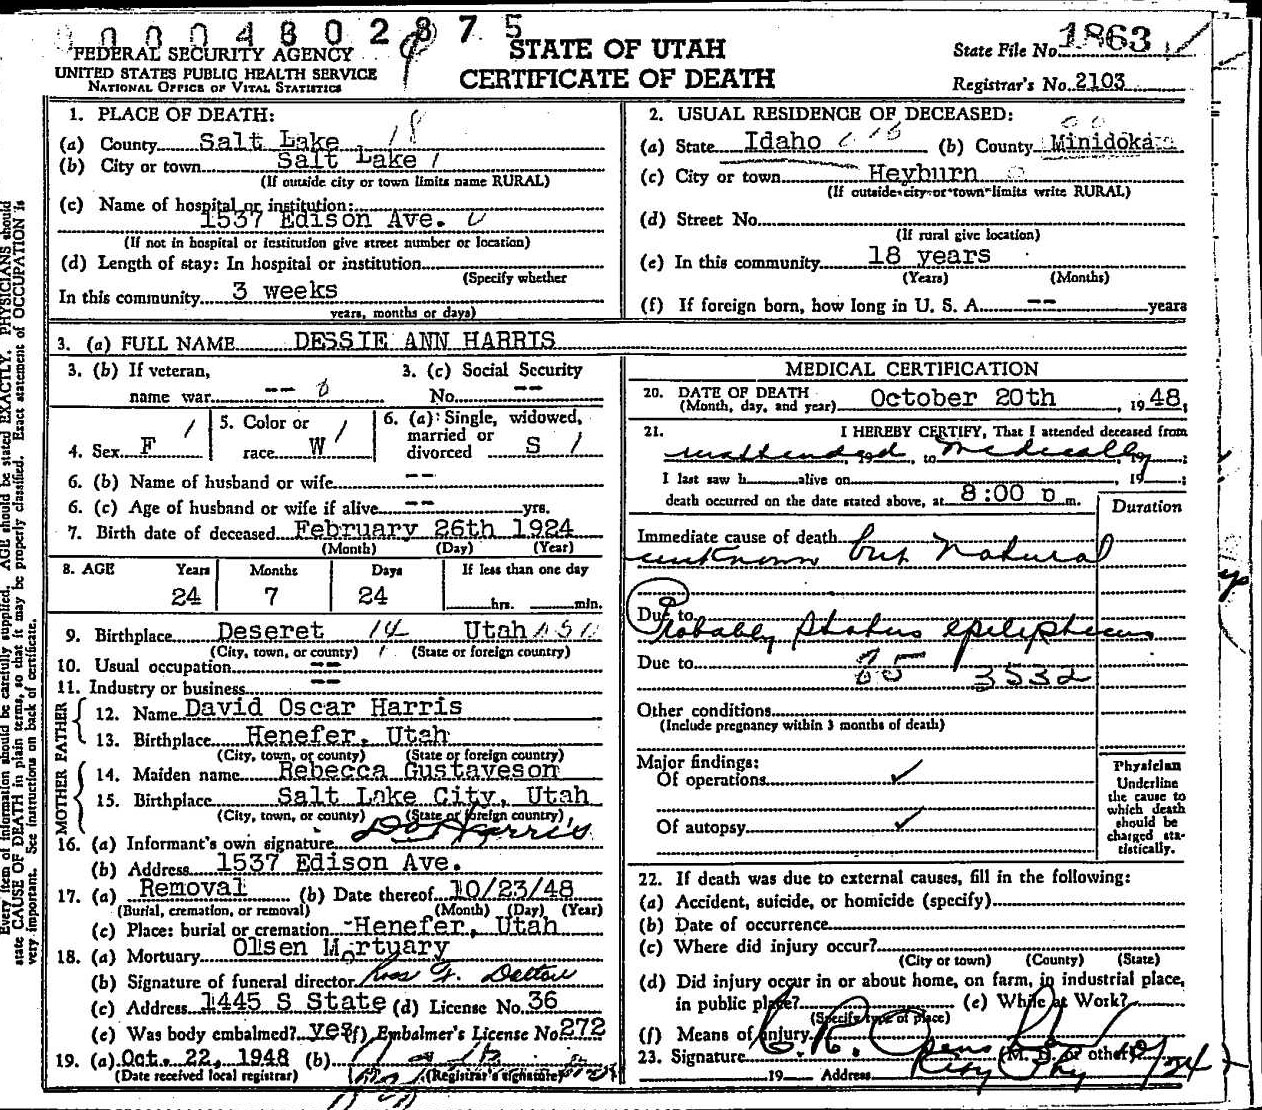 0 0 0 4 8 0 2 8 7 5
FEDERAL SECURITY AGENCY
UNITED STATES PUBLIC HEALTH SERVICE
NATIONAL OFFICE OF VITAL STATISTICS
STATE OF UTAH
CERTIFICATE OF DEATH
State File No. 1863
Registrar's No. 2103
1. PLACE OF DEATH:
(a) County Salt Lake 18
(b) City or town Salt Lake 1
(If outside city or town limits name RURAL)
(c) Name of hospital or institution:
1537 Edison Ave. 0
(If not in hospital or institution give street number or location)
(d) Length of stay: In hospital or institution
(Specify whether
In this community 3 weeks
years, months or days)
2. USUAL RESIDENCE OF DECEASED:
(a) State Idaho (b) County Minidoka
(c) City or town Heyburn
(If outside city or town limits write RURAL)
(d) Street No.
(If rural give location)
(e) In this community 18 years
(Years) (Months)
(f) If foreign born, how long in U. S. A. -- years
3. (a) FULL NAME DESSIE ANN HARRIS
3. (b) If veteran, 3. (c) Social Security
name war -- No. --
4. Sex F 5. Color or race W 6. (a) Single, widowed, married or divorced S
6. (b) Name of husband or wife --
6. (c) Age of husband or wife if alive -- yrs.
7. Birth date of deceased February 26th 1924
(Month) (Day) (Year)
8. AGE Years Months Days If less than one day
24 7 24 hrs. min.
9. Birthplace Deseret 14 Utah
(City, town, or county) (State or foreign country)
10. Usual occupation --
11. Industry or business --
FATHER
12. Name David Oscar Harris
13. Birthplace Henefer, Utah
(City, town, or county) (State or foreign country)
MOTHER
14. Maiden name Rebecca Gustaveson
15. Birthplace Salt Lake City, Utah
(City, town, or county) (State or foreign country)
16. (a) Informant's own signature D O Harris
(b) Address 1537 Edison Ave.
17. (a) Removal (b) Date thereof 10/23/48
(Burial, cremation, or removal) (Month) (Day) (Year)
(c) Place: burial or cremation Henefer, Utah
18. (a) Mortuary Olsen Mortuary
(b) Signature of funeral director
(c) Address 1445 S State (d) License No. 36
(e) Was body embalmed? yes (f) Embalmer's License No. 272
19. (a) Oct. 22, 1948 (b)
(Date received local registrar) (Registrar's signature)
MEDICAL CERTIFICATION
20. DATE OF DEATH
(Month, day, and year) October 20th, 1948;
21. I HEREBY CERTIFY, That I attended deceased from
unattended, 19 , to Medically, 19 ;
I last saw h alive on , 19 ;
death occurred on the date stated above, at 8:00 p m.
Duration
Immediate cause of death
unknown but Natural
Due to
Probably Status epilepticus
Due to
85 3532
Other conditions
(Include pregnancy within 3 months of death)
Major findings:
Of operations ✓
Of autopsy ✓
Physician
Underline
the cause to
which death
should be
charged sta-
tistically.
22. If death was due to external causes, fill in the following:
(a) Accident, suicide, or homicide (specify)
(b) Date of occurrence
(c) Where did injury occur?
(City or town) (County) (State)
(d) Did injury occur in or about home, on farm, in industrial place,
in public place? (e) While at Work?
(Specify type of place)
(f) Means of injury
23. Signature (M. D. or other)
19 Address
Every item of information should be carefully supplied. AGE should be stated EXACTLY. PHYSICIANS should
state CAUSE OF DEATH in plain terms, so that it may be properly classified. Exact statement of OCCUPATION is
very important. See instructions on back of certificate.